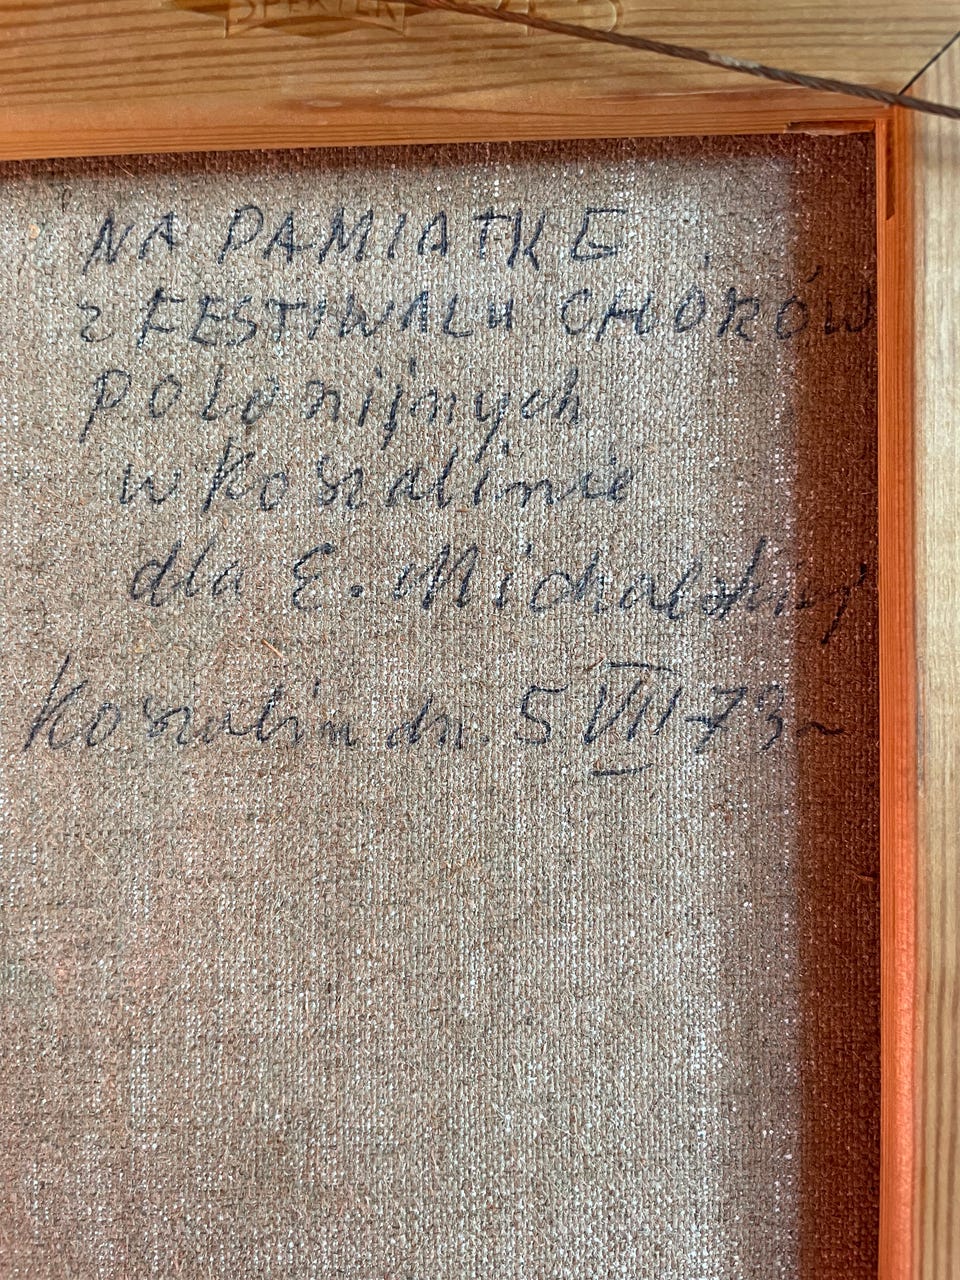 SPEKTER
NA PAMIATKE
z FESTIWALU CHÓRÓW
polonijnych
w koszalinie
dla E. Michalskiej
Koszalin dn. 5 VII 73